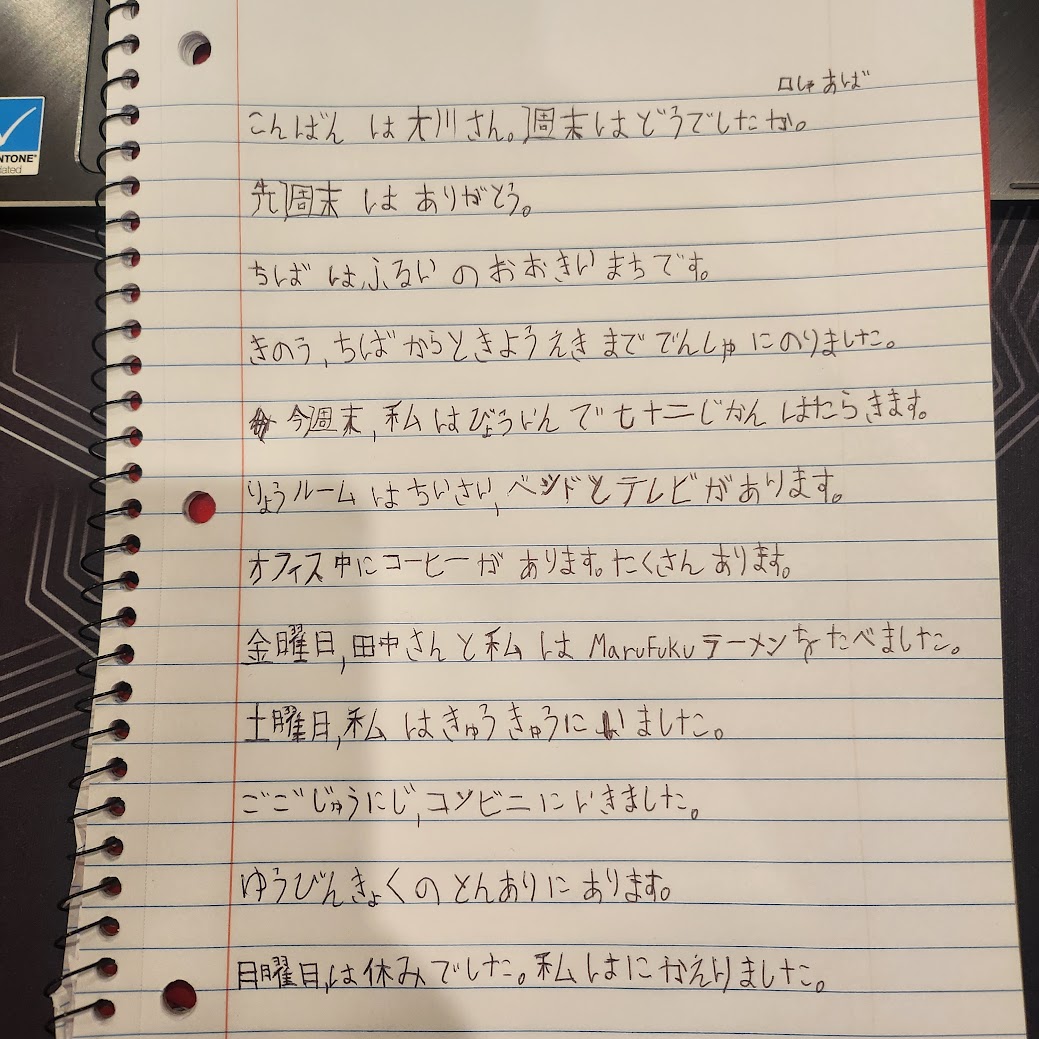 ロしゃ あば
こんばん は 大川さん。週末はどうでしたか。
先週末 は ありがとう。
ちば は ふるい の おおきい まちです。
きのう, ちば から ときよう えき まで でんしゃ にのりました。
今週末, 私 は びょういん で 七十二じかん はたらきます。
りょうルーム は ちいさい, ベッドとテレビがあります。
オフィス中にコーヒーが あります。たくさん あります。
金曜日, 田中さん と 私 は MaruFuku ラーメンを たべました。
土曜日, 私 は きゅうきゅうに いました。
ごご じゅうにじ, コンビニ に いきました。
ゆうびんきょくのとんありに あります。
日曜日, は 休みでした。私 はに かえりました。
NTONE®
dated